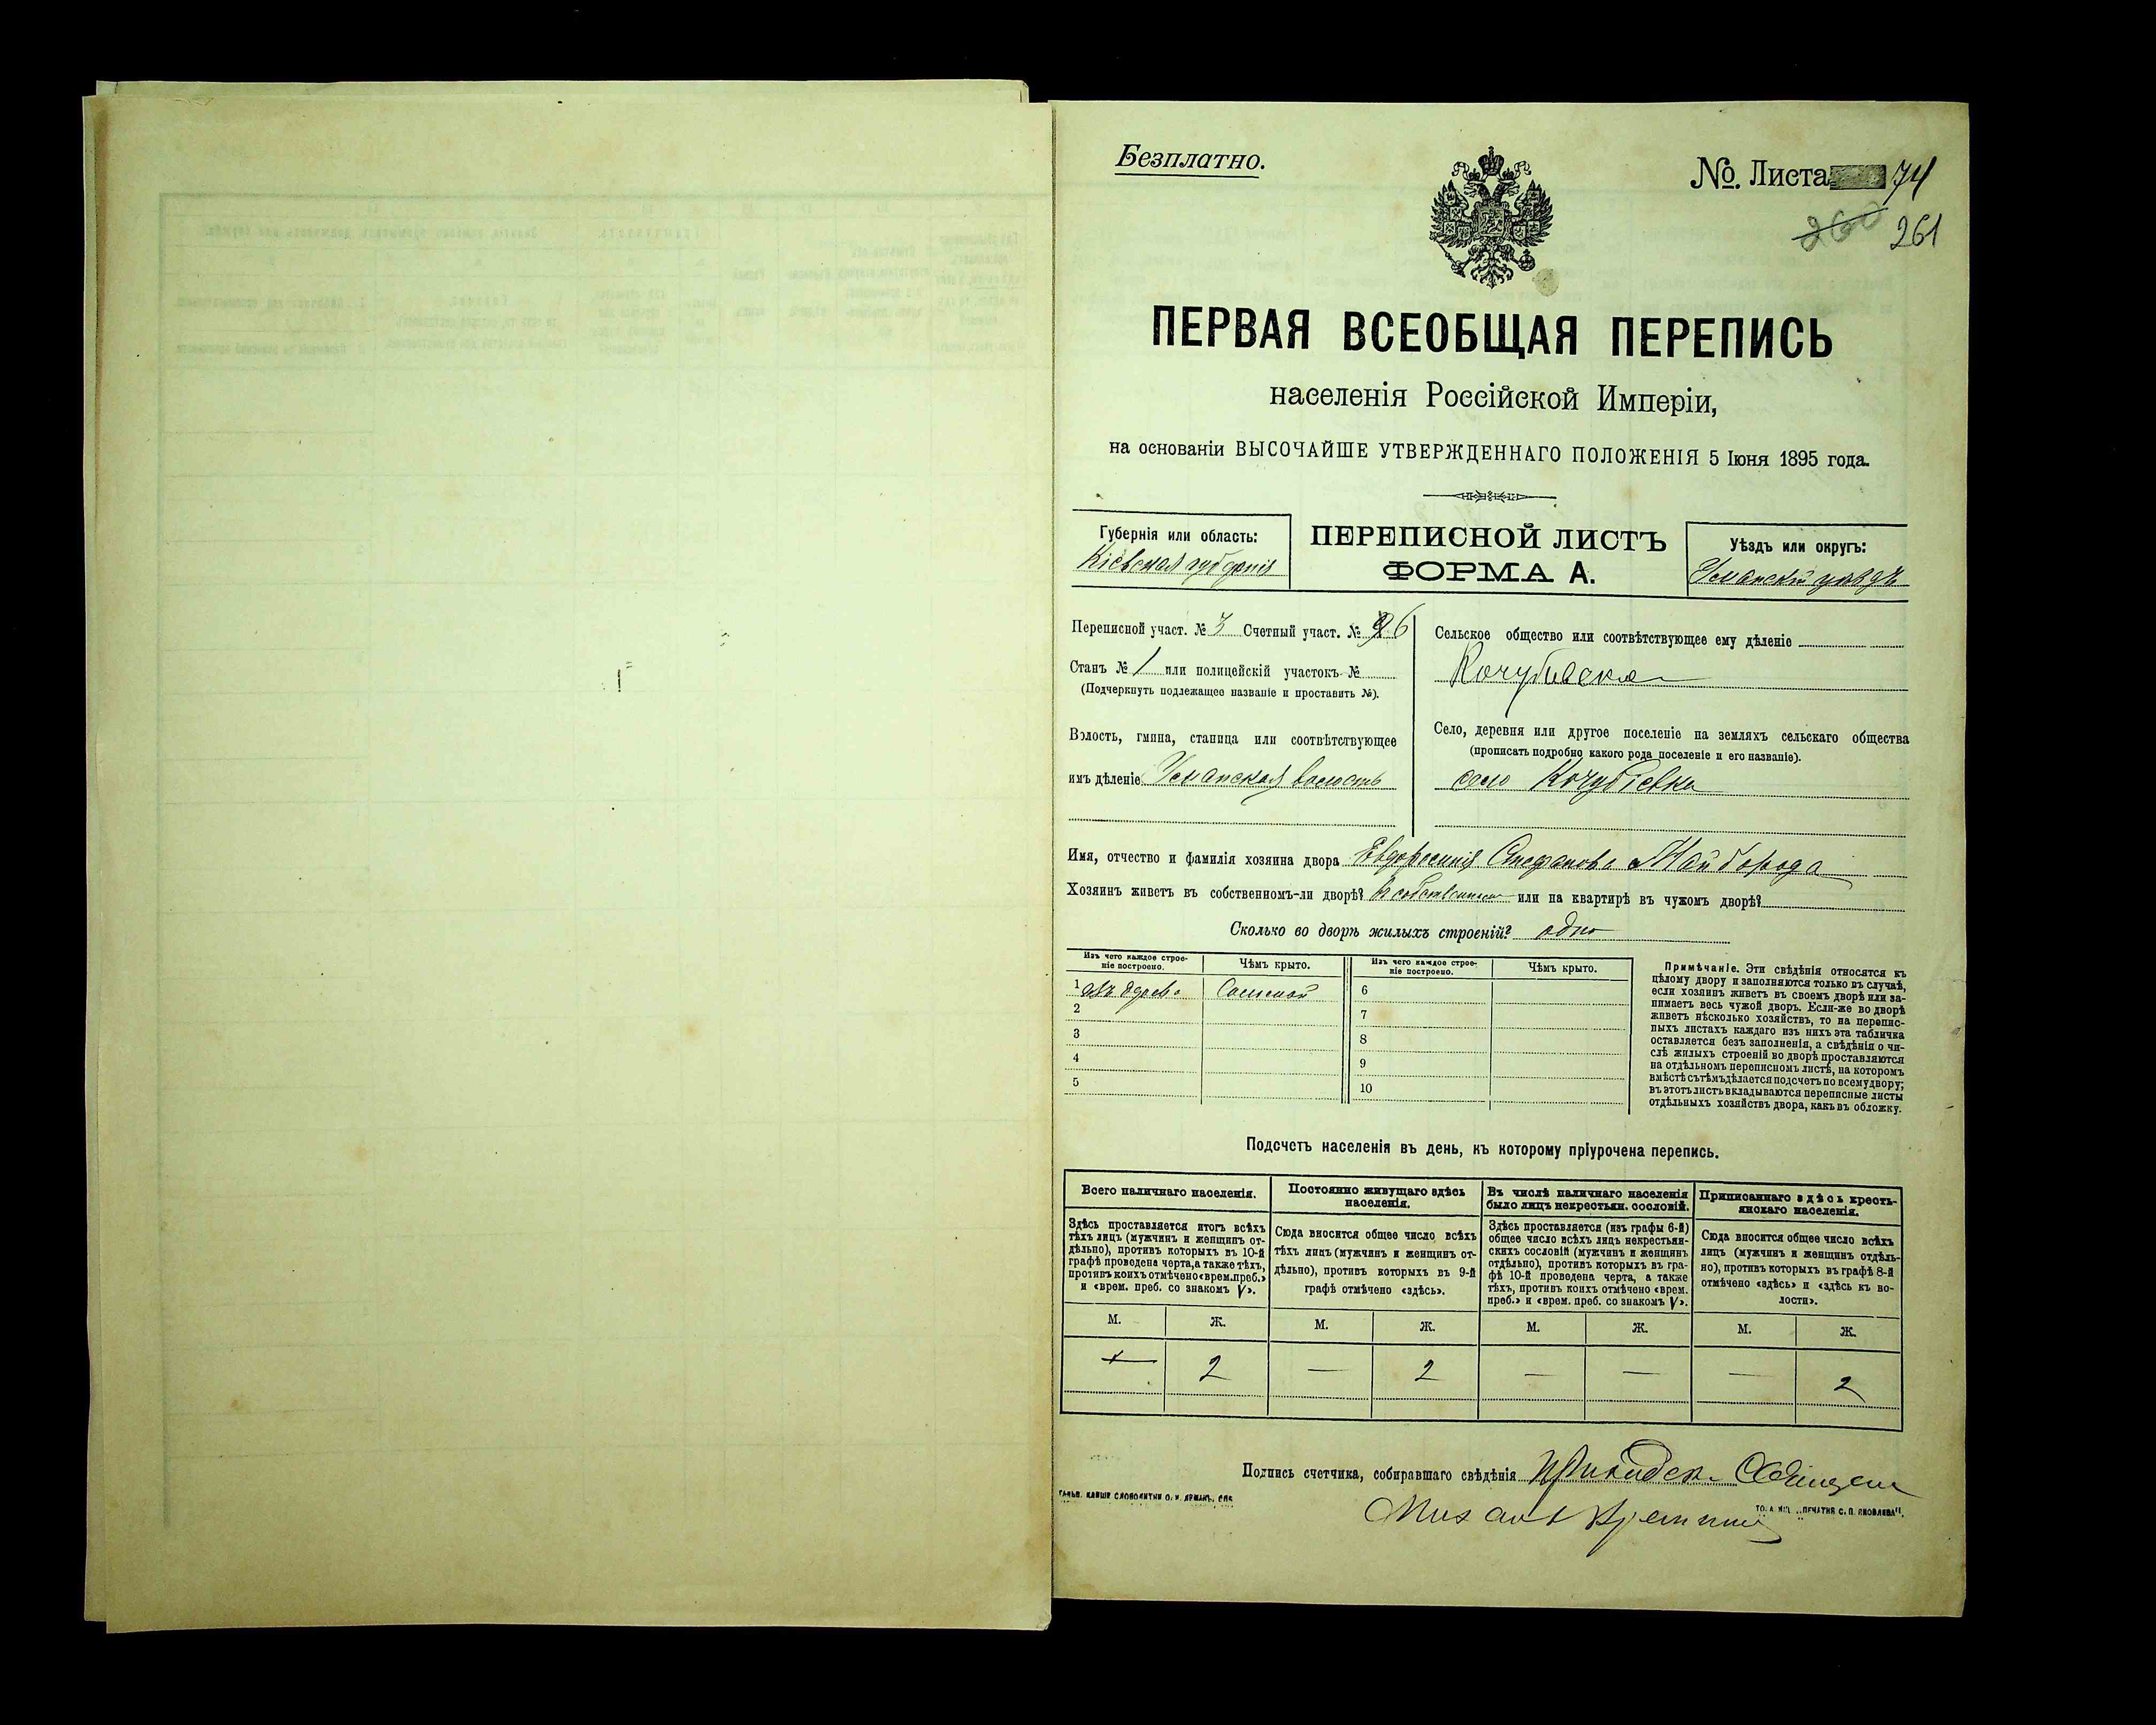 Безплатно.
№. Листа 74
260 261
ПЕРВАЯ ВСЕОБЩАЯ ПЕРЕПИСЬ
населенія Россійской Имперіи,
на основаніи ВЫСОЧАЙШЕ УТВЕРЖДЕННАГО ПОЛОЖЕНІЯ 5 Іюня 1895 года.
Губернія или область:
Кіевская губернія
ПЕРЕПИСНОЙ ЛИСТЪ
ФОРМА А.
Уѣздъ или округъ:
Уманскій уѣздъ
Переписной участ. № 3 Счетный участ. № 6
Станъ № 1 или полицейскій участокъ №
(Подчеркнуть подлежащее названіе и проставить №).
Волость, гмина, станица или соотвѣтствующее
имъ дѣленіе Уманская волость
Сельское общество или соотвѣтствующее ему дѣленіе
Кочубиевское
Село, деревня или другое поселеніе на земляхъ сельскаго общества
(прописать подробно какого рода поселеніе и его названіе).
село Кочубіевка
Имя, отчество и фамилія хозяина двора Евдоксинія Стефанова Майборода
Хозяинъ живетъ въ собственномъ-ли дворѣ? въ собственномъ или на квартирѣ въ чужомъ дворѣ?
Сколько во дворѣ жилыхъ строеній? одно
Изъ чего каждое строе-
ніе построено.
Чѣмъ крыто.
Изъ чего каждое строе-
ніе построено.
Чѣмъ крыто.
1 изъ дерева Соломой
6
2
7
3
8
4
9
5
10
Примѣчаніе. Эти свѣдѣнія относятся къ
цѣлому двору и заполняются только въ случаѣ,
если хозяинъ живетъ въ своемъ дворѣ или за-
нимаетъ весь чужой дворъ. Если-же во дворѣ
живетъ нѣсколько хозяйствъ, то на перепис-
ныхъ листахъ каждаго изъ нихъ эта табличка
оставляется безъ заполненія, а свѣдѣнія о чи-
слѣ жилыхъ строеній во дворѣ проставляются
на отдѣльномъ переписномъ листѣ, на которомъ
вмѣстѣ съ тѣмъ дѣлается подсчетъ по всему двору;
въ этотъ листъ вкладываются переписные листы
отдѣльныхъ хозяйствъ двора, какъ въ обложку.
Подсчетъ населенія въ день, къ которому пріурочена перепись.
Всего наличнаго населенія.
Здѣсь проставляется итогъ всѣхъ
тѣхъ лицъ (мужчинъ и женщинъ от-
дѣльно), противъ которыхъ въ 10-й
графѣ проведена черта, а также тѣхъ,
противъ коихъ отмѣчено «врем. преб.»
и «врем. преб. со знакомъ V».
Постоянно живущаго здѣсь
населенія.
Сюда вносится общее число всѣхъ
тѣхъ лицъ (мужчинъ и женщинъ от-
дѣльно), противъ которыхъ въ 9-й
графѣ отмѣчено «здѣсь».
Въ числѣ наличнаго населенія
было лицъ некрестьян. сословій.
Здѣсь проставляется (изъ графы 6-й)
общее число всѣхъ лицъ некрестьян-
скихъ сословій (мужчинъ и женщинъ
отдѣльно), противъ которыхъ въ гра-
фѣ 10-й проведена черта, а также
тѣхъ, противъ коихъ отмѣчено «врем.
преб.» и «врем. преб. со знакомъ V».
Приписаннаго здѣсь кресть-
янскаго населенія.
Сюда вносится общее число всѣхъ
лицъ (мужчинъ и женщинъ отдѣль-
но), противъ которыхъ въ графѣ 8-й
отмѣчено «здѣсь» и «здѣсь къ во-
лости».
М. Ж. М. Ж. М. Ж. М. Ж.
— 2 — 2 — — — 2
Подпись счетчика, собиравшаго свѣдѣнія
Михаилъ